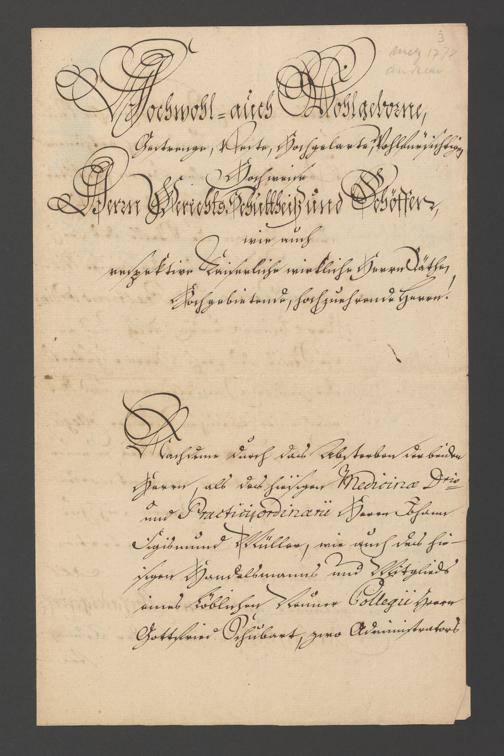 3
Hochwohl- auch Wohlgeborne,
Gestrenge, Veste, Hochgelarte, Wohlfürsichtige
Hochweise
Herrn Gerichts Schultheiß und Schöffen,
wie auch
respektive Kaiserliche wirkliche Herrn Räthe,
Hochgebietende, hochzuehrende Herrn!
Nachdeme durch das Absterben der beiden
Herrn, als des hiesigen Medicinæ Dris
und Practici ordinarii Herrn Johann
Sigismund Müller, wie auch des hie-
sigen Handelsmanns und Mitglieds
eines Löblichen Neuner Collegii Herrn
Gottfried Schubart, zwo Administrators